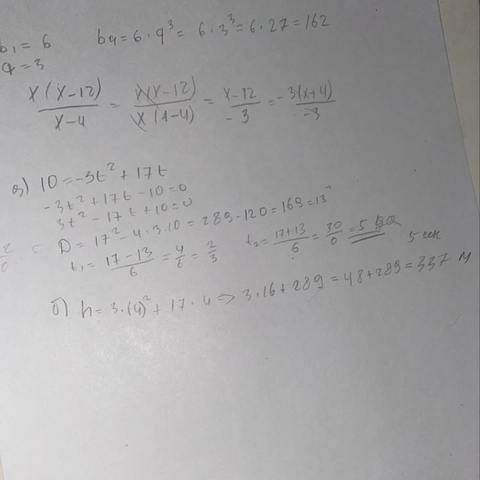 b₁ = 6 b₄ = 6 · q³ = 6 · 3³ = 6 · 27 = 162
q = 3
x(x-12)/x-4 = x(x-12)/x(1-4) = x-12/-3 = -3(x+4)/-3
а) 10 = -3t² + 17t
-3t² + 17t - 10 = 0
3t² - 17t + 10 = 0
D = 17² - 4 · 3 · 10 = 289 - 120 = 169 = 13²
t₁ = 17-13/6 = 4/6 = 2/3 t₂ = 17+13/6 = 30/6 = 5 5 сек
б) h = 3 · (4)² + 17 · 4 => 3 · 16 + 289 = 48 + 289 = 337 м